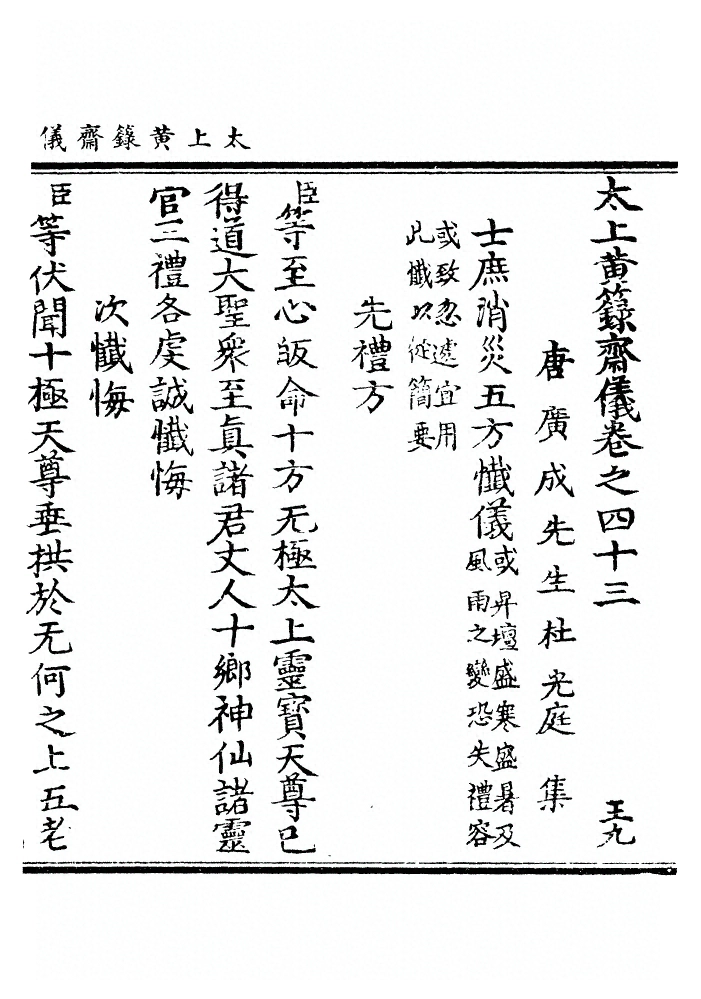 太上黄籙齋儀
太上黄籙齋儀卷之四十三
王九
唐廣成先生杜光庭集
士庶消災五方懺儀或昇壇盛寒盛暑及
風雨之變恐失禮容
或致忽遽宜用
此懺以從簡要
先禮方
臣等至心皈命十方无極太上靈寶天尊已
得道大聖衆至眞諸君丈人十鄉神仙諸靈
官三禮各虔誠懺悔
次懺悔
臣等伏聞十極天尊垂拱於无何之上五老